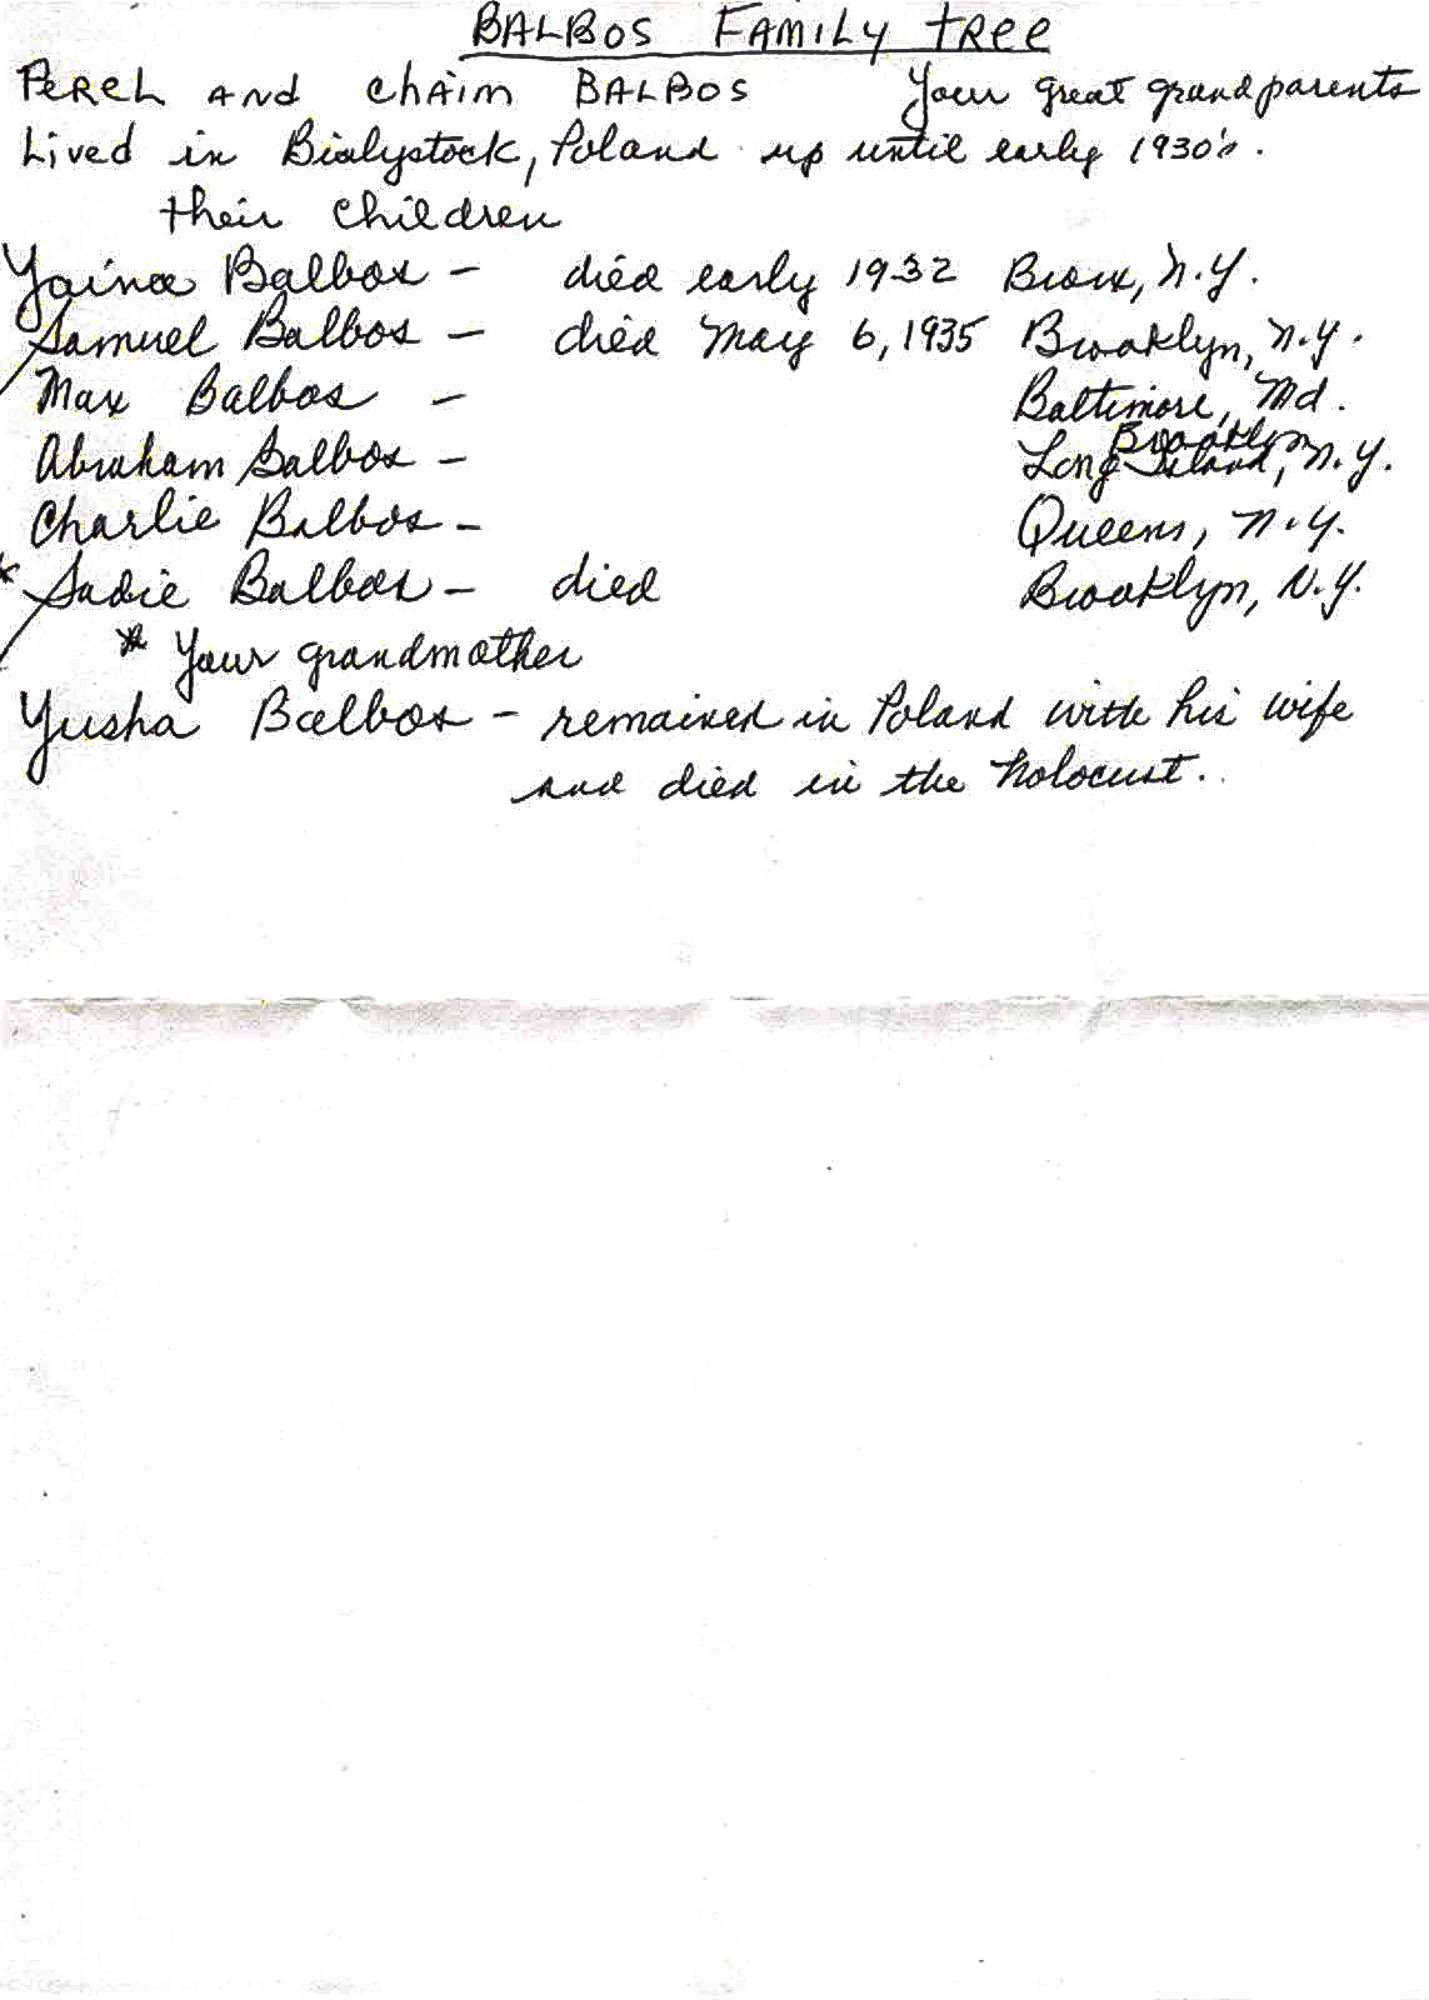 BALBOS FAMILY tREE
PEREL AND CHAIM BALBOS Your great grandparents
Lived in Bialystock, Poland up until early 1930's.
their children
Balbos - died early 1932 Bronx, N.Y.
Samuel Balbos - died May 6, 1935 Brooklyn, N.Y.
Max Balbos - Baltimore, Md.
Brooklyn
Abraham Balbos - Long Island, N.Y.
Charlie Balbos - Queens, N.Y.
* Sadie Balbos - died Brooklyn, N.Y.
* Your grandmother
Yusha Balbos - remained in Poland with his wife
and died in the holocust.